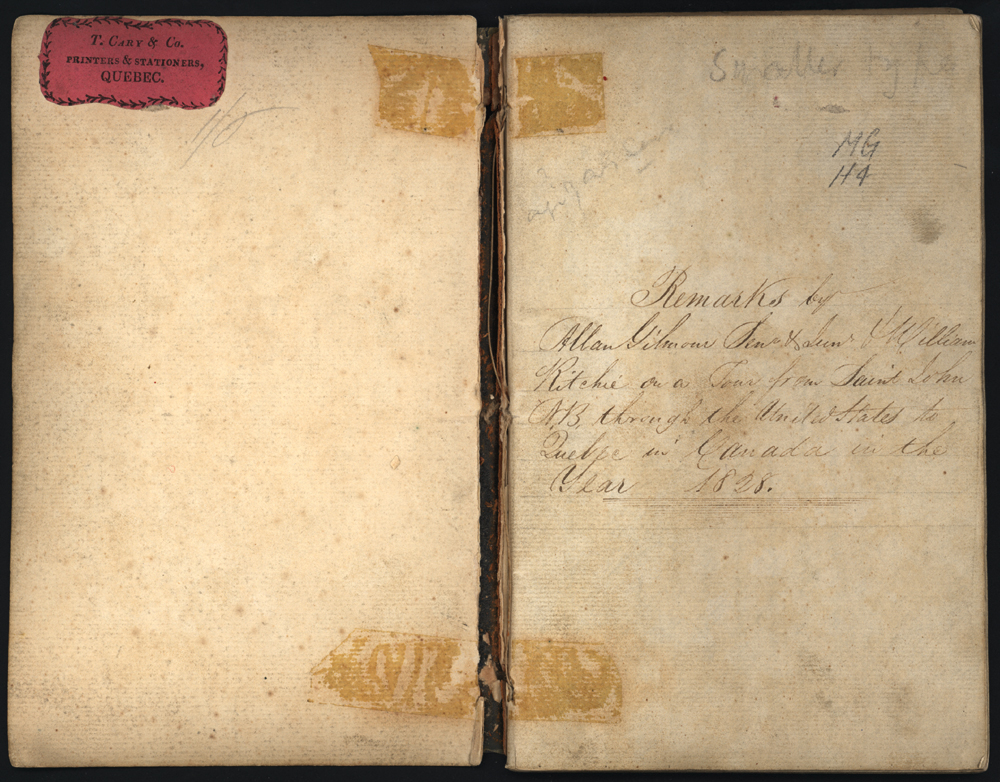 T. CARY & Co.
PRINTERS & STATIONERS,
QUEBEC.
Smaller
MG
H4
Remarks by
Allan Gilmour Senr & Junr & William
Ritchie on a Tour from Saint John
N.B. through the United States to
Quebec in Canada in the
Year 1828.